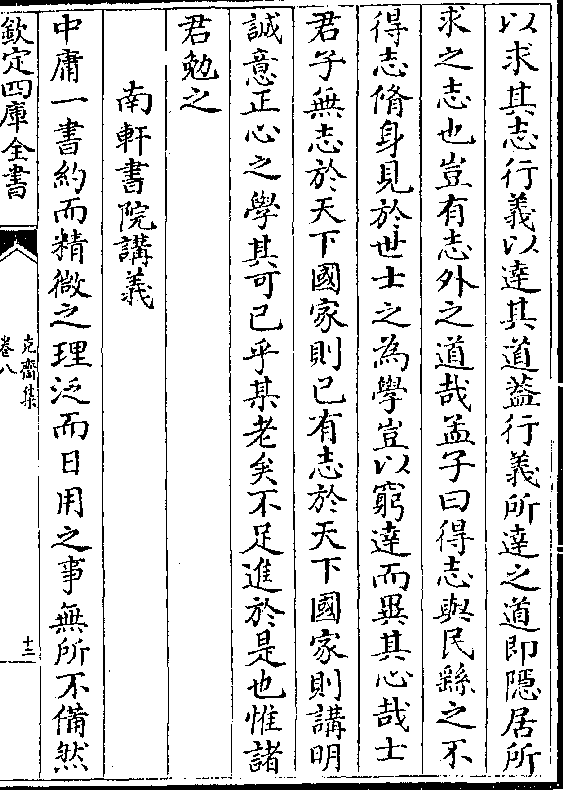 以求其志行義以達其道葢行義所達之道即隠居所
求之志也豈有志外之道哉孟子曰得志與民繇之不
得志脩身見於世士之為學豈以窮達而異其心哉士
君子無志於天下國家則已有志於天下國家則講明
誠意正心之學其可已乎某老矣不足進於是也惟諸
君勉之
南軒書院講義
中庸一書約而精微之理泛而日用之事無所不備然
欽定四庫全書
克齋集
卷八
十三